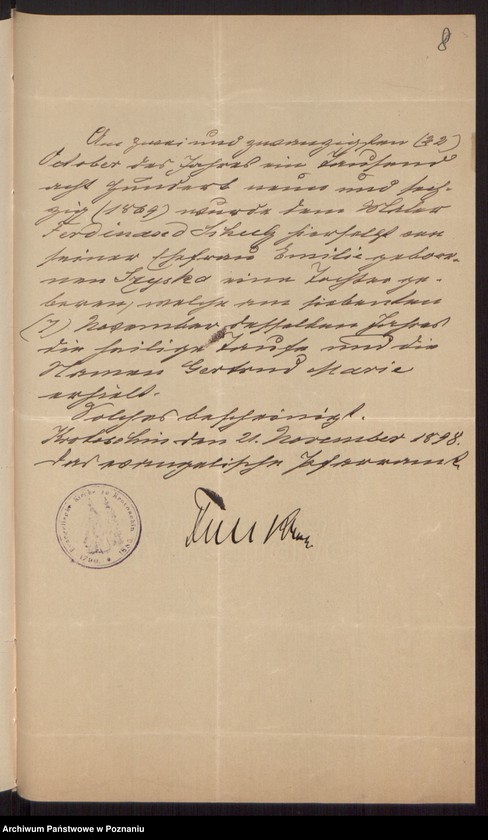 8
Am zwei und zwanzigsten (22)
October des Jahres ein Tausend
acht hundert neun und sech-
zig (1869) wurde dem Maler
Ferdinand Schulz hierselbst von
seiner Ehefrau Emilie gebore-
nen Szyska eine Tochter ge-
boren, welche am siebenten
(7) November desselben Jahres
die heilige Taufe und die
Namen Gertrud Marie
erhielt.
Solches bescheinigt.
Krotoschin den 21. November 1898.
das evangelische Pfarramt.
Archiwum Państwowe w Poznaniu